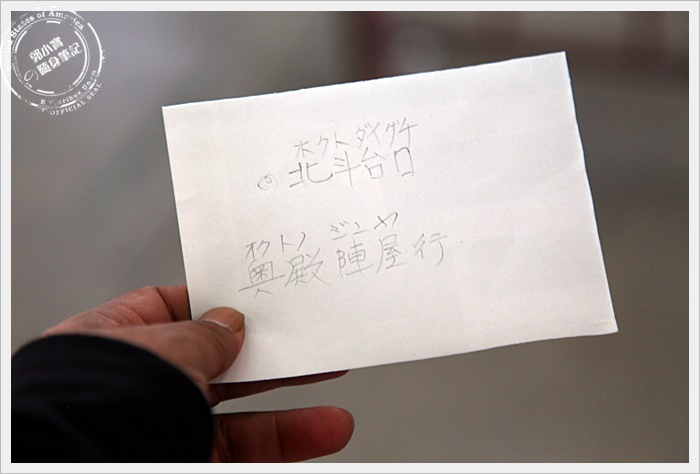 郭小寶
の隨身筆記
States of America
E Pluribus Unum
OFFICIAL SEAL
ホクト ダイグチ
北斗台口
オクトノ ジンヤ
奥殿陣屋行